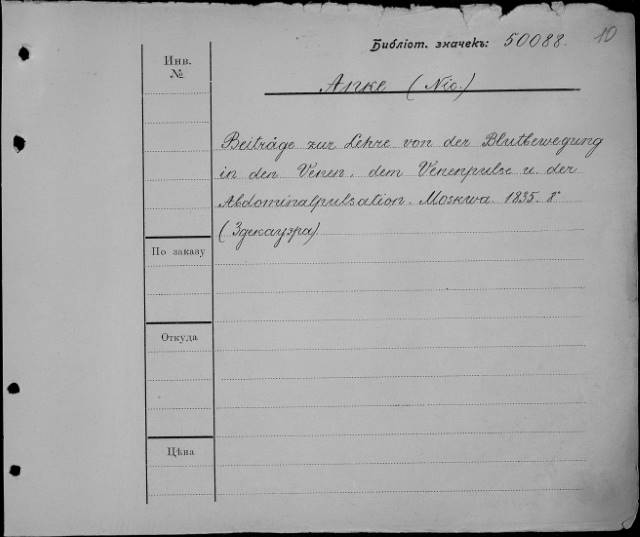 Библіот. значекъ: 50088.
10
Инв.
№
Anke (Nic.)
Beiträge zur Lehre von der Blutbewegung
in den Venen, dem Venenpulse u. der
Abdominalpulsation. Moskwa 1835. 8°
(Здекауэра)
По заказу
Откуда
Цѣна